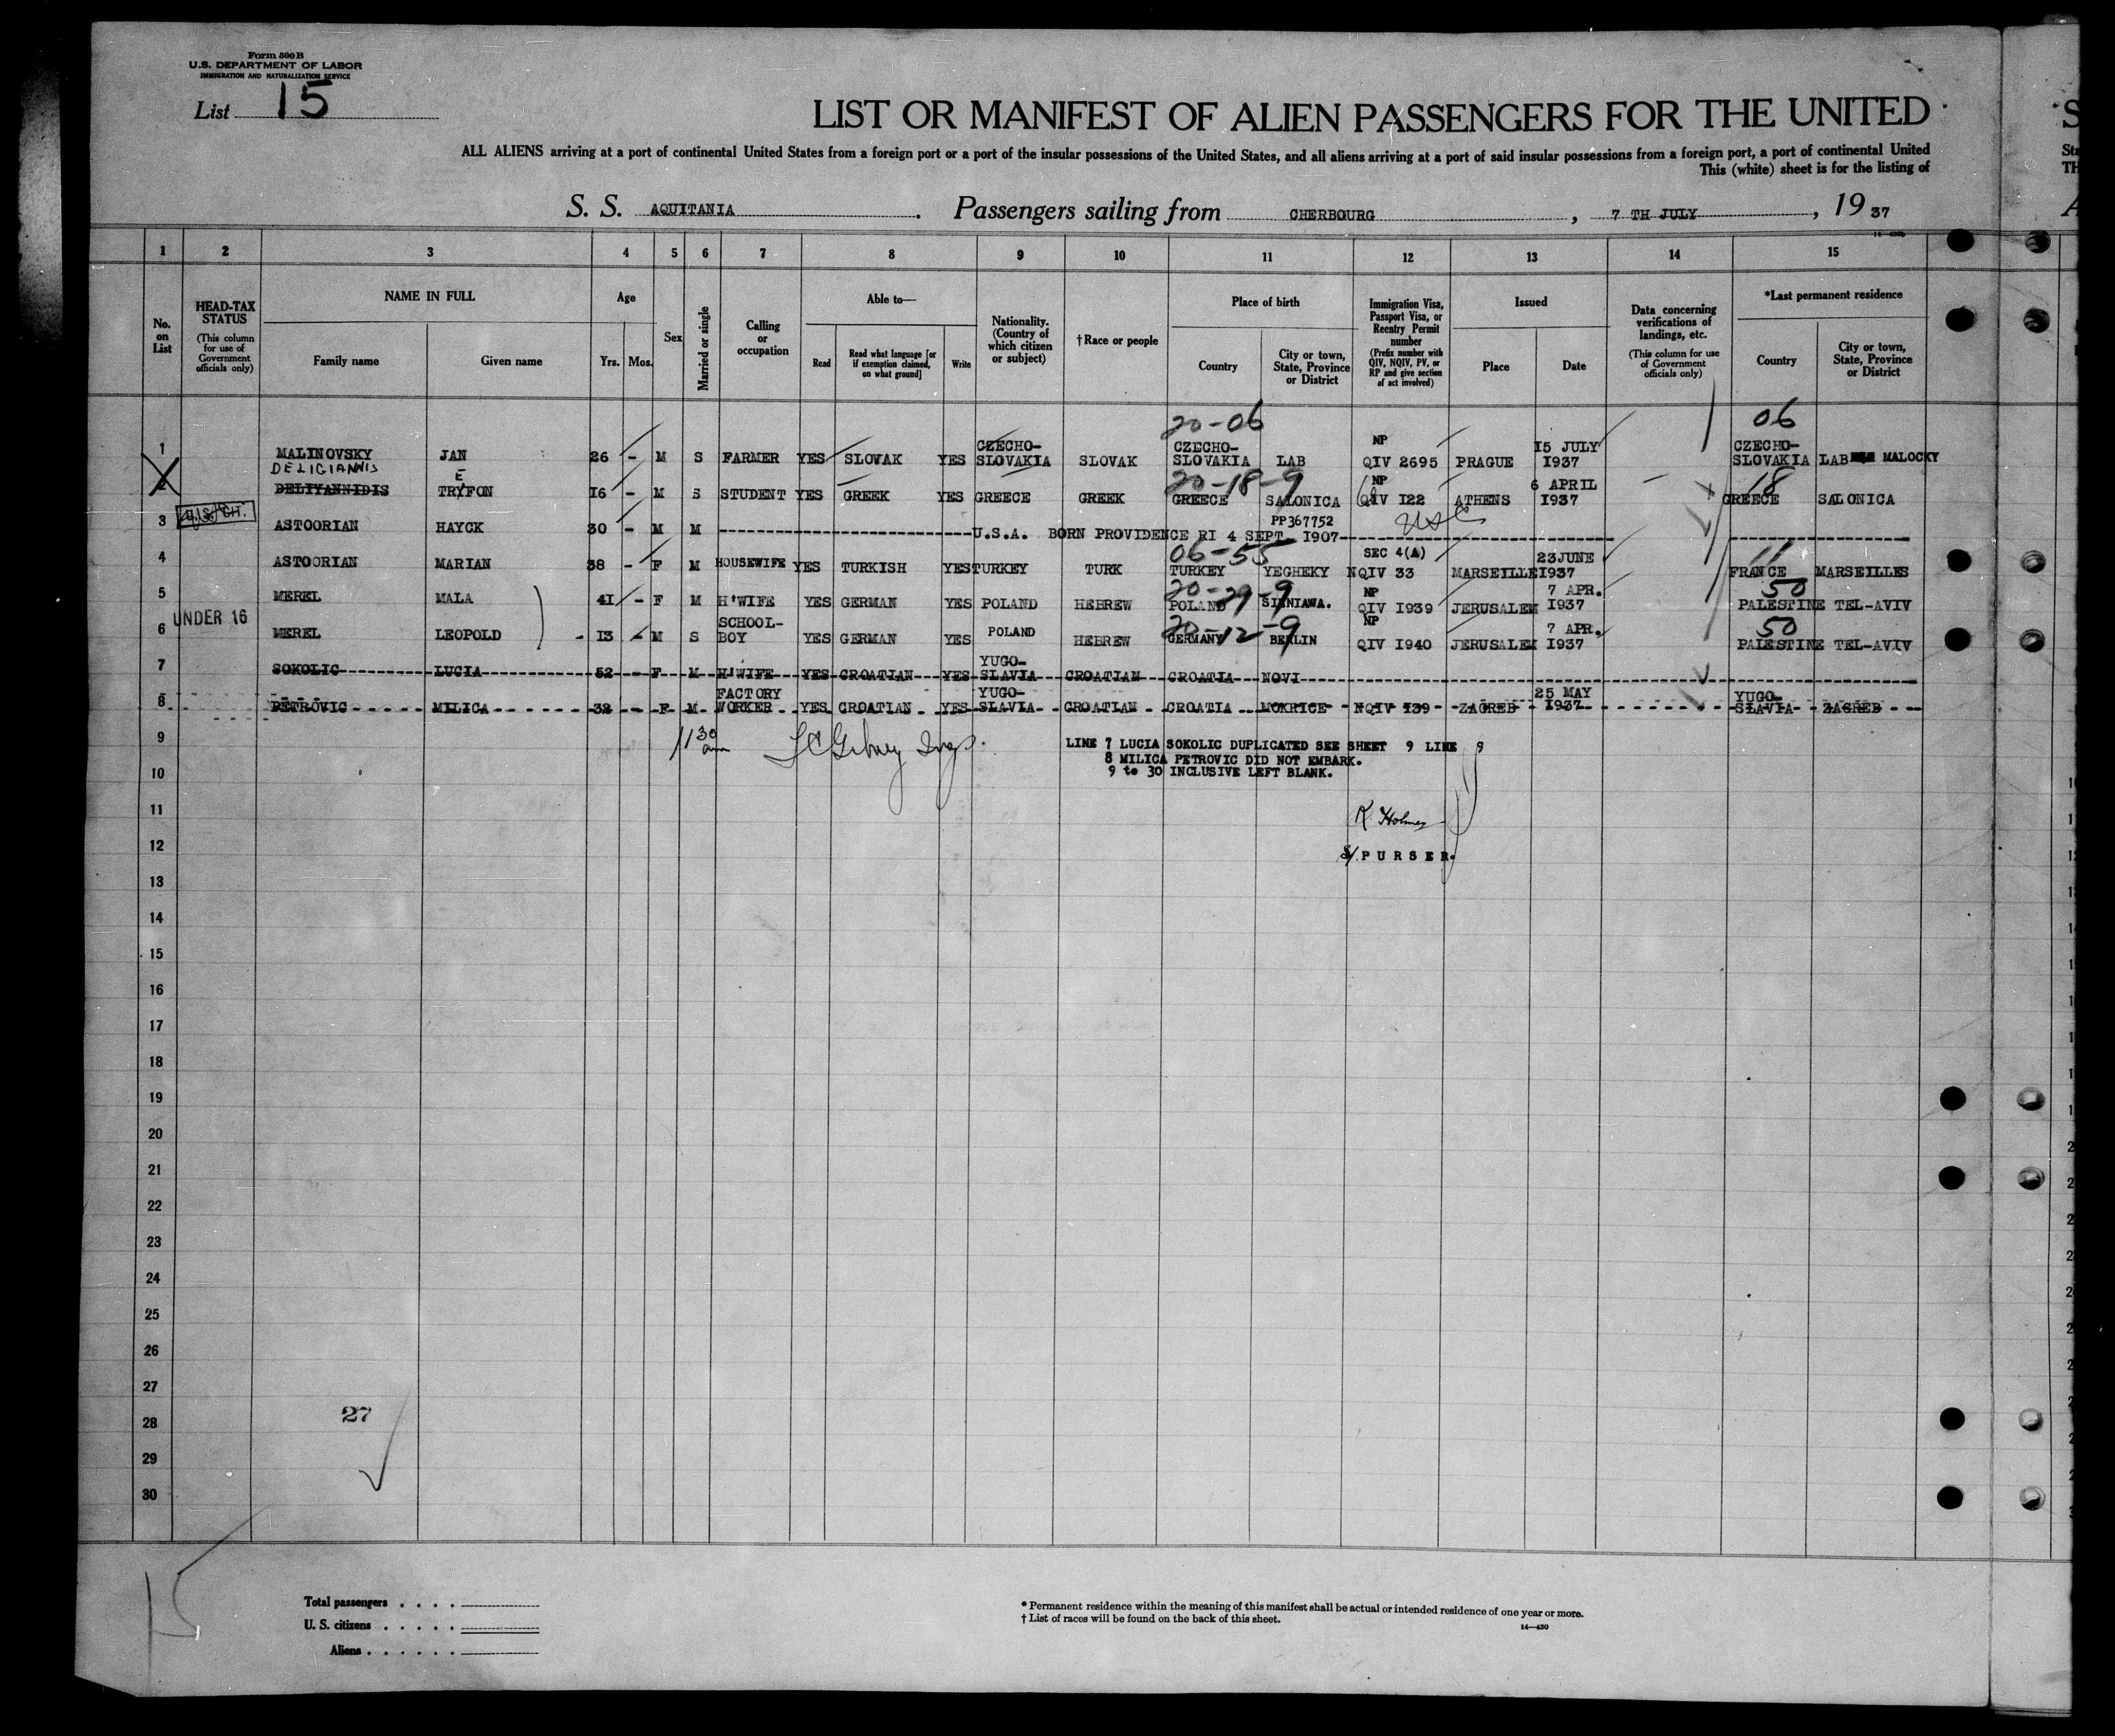 Form 500 B
U.S. DEPARTMENT OF LABOR
IMMIGRATION AND NATURALIZATION SERVICE
List 15
LIST OR MANIFEST OF ALIEN PASSENGERS FOR THE UNITED
ALL ALIENS arriving at a port of continental United States from a foreign port or a port of the insular possessions of the United States, and all aliens arriving at a port of said insular possessions from a foreign port, a port of continental United
This (white) sheet is for the listing of
S. S. AQUITANIA. Passengers sailing from CHERBOURG, 7 TH JULY, 19 37
1 2 3 4 5 6 7 8 9 10 11 12 13 14 15
No. on List
HEAD-TAX STATUS (This column for use of Government officials only)
NAME IN FULL
Family name Given name
Age
Yrs. Mos.
Sex
Married or single
Calling or occupation
Able to—
Read Read what language [or if exemption claimed, on what ground] Write
Nationality. (Country of which citizen or subject)
†Race or people
Place of birth
Country City or town, State, Province or District
Immigration Visa, Passport Visa, or Reentry Permit number (Prefix number with QIV, NQIV, PV, or RP and give section of act involved)
Issued
Place Date
Data concerning verifications of landings, etc. (This column for use of Government officials only)
*Last permanent residence
Country City or town, State, Province or District
20-06 06
1 MALINOVSKY JAN 26 - M S FARMER YES SLOVAK YES CZECHO-SLOVAKIA SLOVAK CZECHO-SLOVAKIA LAB NP QIV 2695 PRAGUE 15 JULY 1937 CZECHO-SLOVAKIA LAB MALOCKY
DELIGIANNIS E 20-18-9 18
2 DELIYANNIDIS TRYFON 16 - M S STUDENT YES GREEK YES GREECE GREEK GREECE SALONICA NP QIV 122 ATHENS 6 APRIL 1937 GREECE SALONICA
3 ASTOORIAN HAYCK 30 - M M U.S.A. BORN PROVIDENCE RI 4 SEPT 1907 PP367752 USC
06-55 11
4 ASTOORIAN MARIAN 38 - F M HOUSEWIFE YES TURKISH YES TURKEY TURK TURKEY YEGHEKY SEC 4(A) NQIV 33 MARSEILLE 23JUNE 1937 FRANCE MARSEILLES
20-29-9 50
5 MEREL MALA 41 - F M H'WIFE YES GERMAN YES POLAND HEBREW POLAND SIENIAWA. NP QIV 1939 JERUSALEM 7 APR. 1937 PALESTINE TEL-AVIV
UNDER 16 20-12-9 50
6 MEREL LEOPOLD - 13 - M S SCHOOL-BOY YES GERMAN YES POLAND HEBREW GERMANY BERLIN NP QIV 1940 JERUSALEM 7 APR. 1937 PALESTINE TEL-AVIV
7 SOKOLIC LUCIA 52 - F M H'WIFE YES CROATIAN YES YUGO-SLAVIA CROATIAN CROATIA NOVI
8 PETROVIC MILICA 32 - F M FACTORY WORKER YES CROATIAN YES YUGO-SLAVIA CROATIAN CROATIA MOKRICE NQIV 139 ZAGREB 25 MAY 1937 YUGO-SLAVIA ZAGREB
9 1130 am
LINE 7 LUCIA SOKOLIC DUPLICATED SEE SHEET 9 LINE 9
8 MILICA PETROVIC DID NOT EMBARK.
10 9 to 30 INCLUSIVE LEFT BLANK.
11 R. Holmes
12 S/ PURSER.
13
14
15
16
17
18
19
20
21
22
23
24
25
26
27
28 27
29
30
Total passengers . . . .
U. S. citizens . . . . .
Aliens . . . . . .
* Permanent residence within the meaning of this manifest shall be actual or intended residence of one year or more.
† List of races will be found on the back of this sheet.
14—430